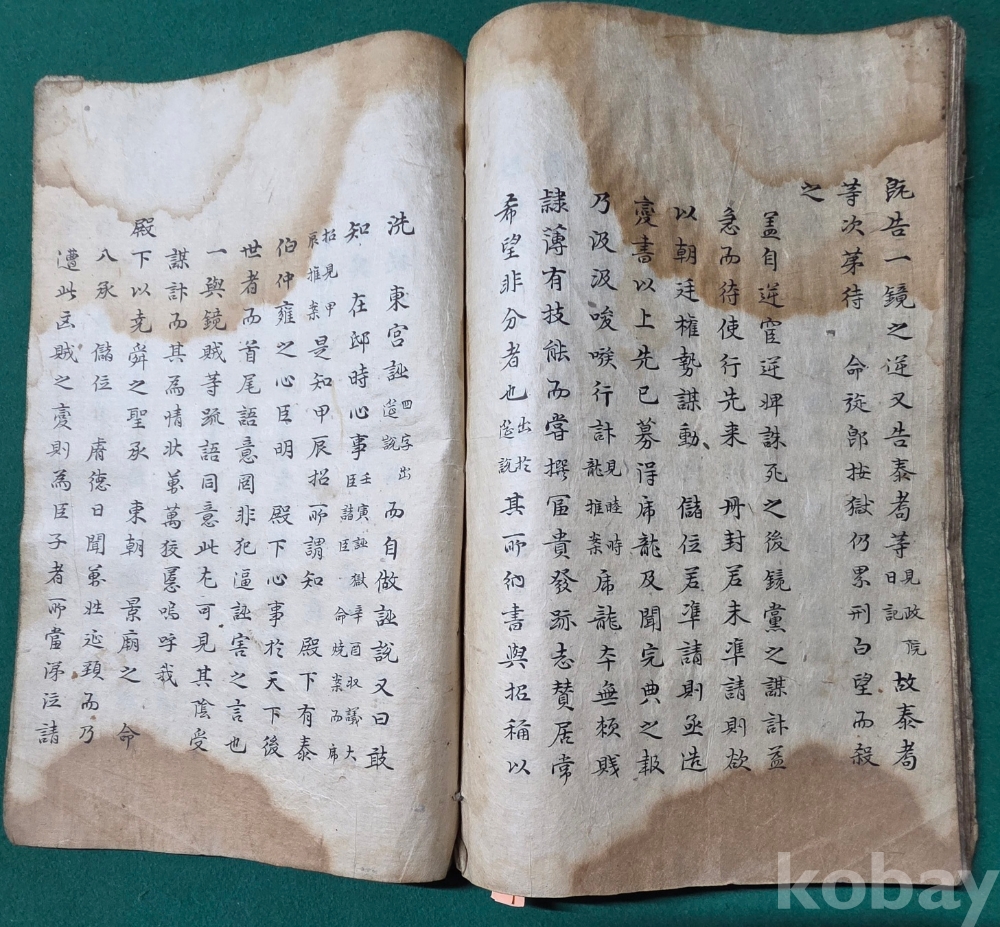 既告一鏡之逆又告泰耉等見政院日記故泰耉
等次第待 命旋郎按獄仍累刑白望而殺
之
盖自逆宦逆婢誅死之後鏡黨之謀計益
急而待使行先来 冊封若未準請則欲
以朝廷權勢謀動 儲位若準請則亟造
變書以上先已募得席龍及聞完典之報
乃汲汲唆嗾行計見睦時龍推案席龍本無頼賤
隷薄有技能而嘗撰冨貴發跡志賛居常
希望非分者也出於造說其所納書與招稱以
洗 東宫誣四字出造說而自做誣說又曰敢
知 在邸時心事壬寅誣獄辛酉収議大臣諸臣 命燒案而席
招見甲辰推案是知甲辰招所謂知 殿下有泰
伯仲雍之心臣明 殿下心事於天下後
世者而首尾語意罔非犯逼誣害之言也
一與鏡賊等䟽語同意此尤可見其陰受
謀計而其為情狀萬萬狡慝嗚呼我
殿下以尭舜之聖承 東朝 景廟之 命
入承 儲位 睿德日聞萬姓延頸而乃
遭此凶賊之變則為臣子者所當涕泣請